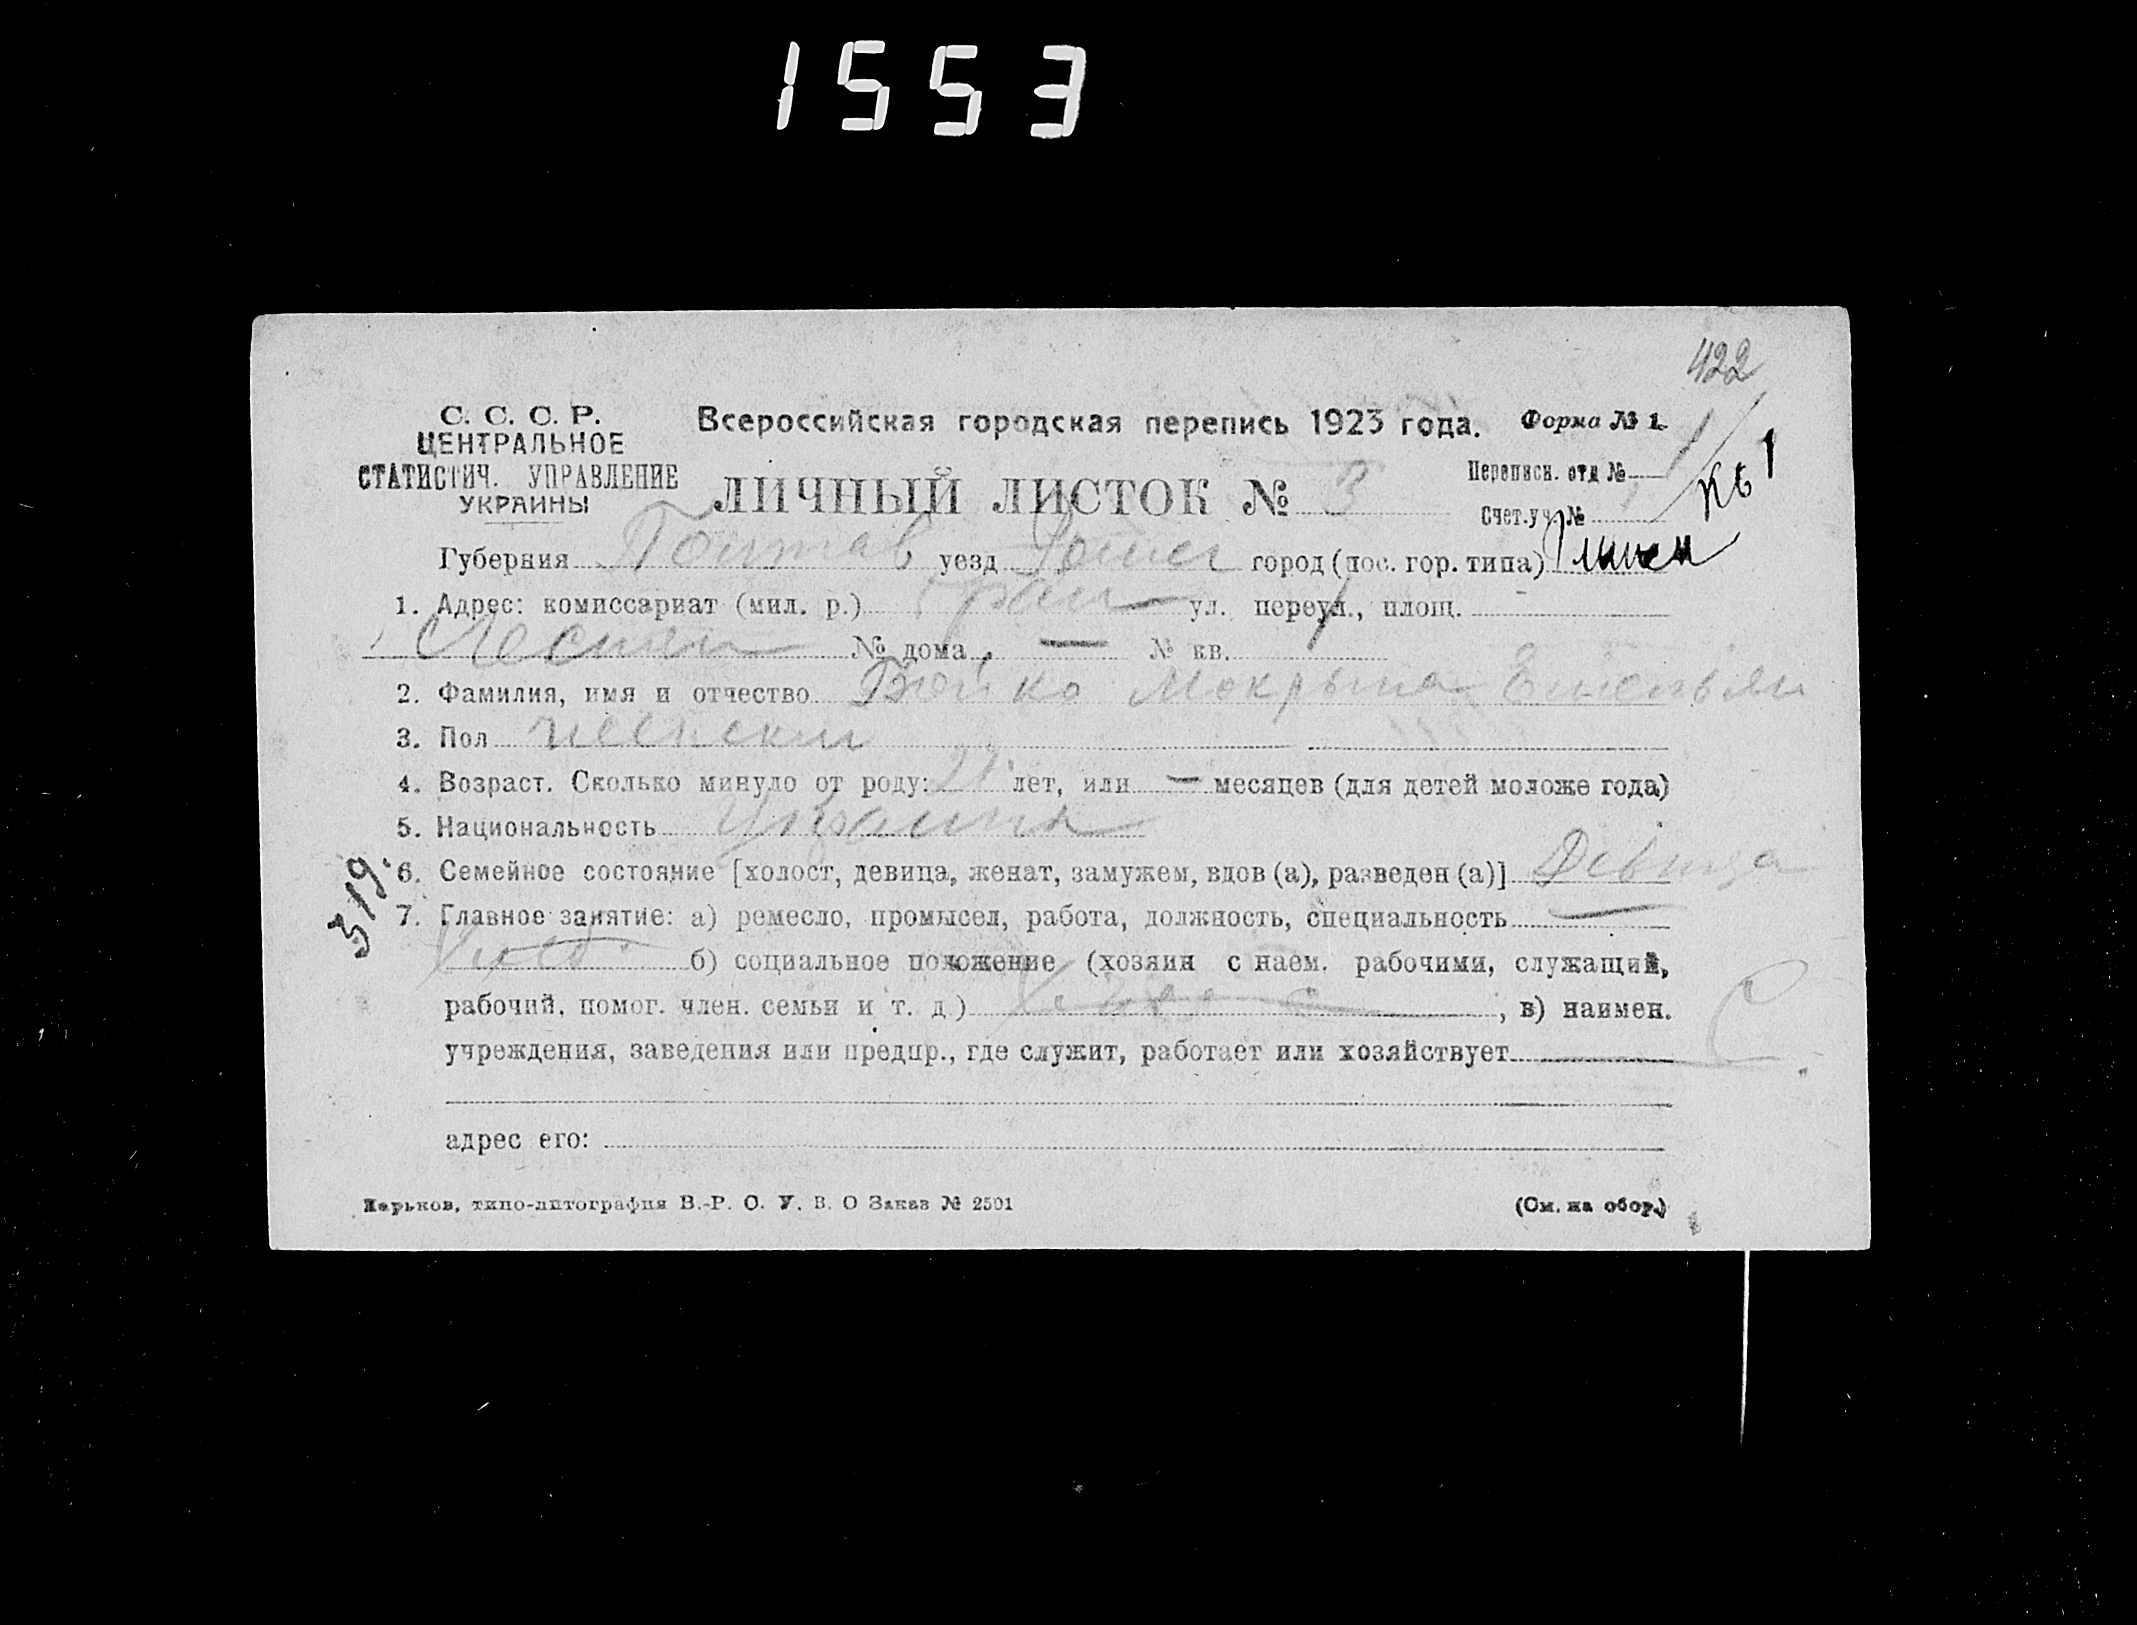 1553
422
С. С. С. Р.
ЦЕНТРАЛЬНОЕ
СТАТИСТИЧ. УПРАВЛЕНИЕ
УКРАИНЫ
Всероссийская городская перепись 1923 года. Форма № 1.
ЛИЧНЫЙ ЛИСТОК № 3
Переписн. отд № 1
Счет.уч. №
Губерния Полтав уезд Ромен город (пос. гор. типа)
1. Адрес: комиссариат (мил. р.) ул. переул., площ.
№ дома — № кв.
2. Фамилия, имя и отчество Бойко Мокрына Емельян
3. Пол женский
4. Возраст. Сколько минуло от роду: лет, или — месяцев (для детей моложе года)
5. Национальность Украинка
319.
6. Семейное состояние [холост, девица, женат, замужем, вдов (а), разведен (а)] Девица
7. Главное занятие: а) ремесло, промысел, работа, должность, специальность —
б) социальное положение (хозяин с наем. рабочими, служащий,
рабочий, помог. член. семьи и т. д) , в) наимен.
учреждения, заведения или предпр., где служит, работает или хозяйствует
адрес его:
Харьков, типо-литография В.-Р. О. У. В. О Заказ № 2501 (См. на обор.)